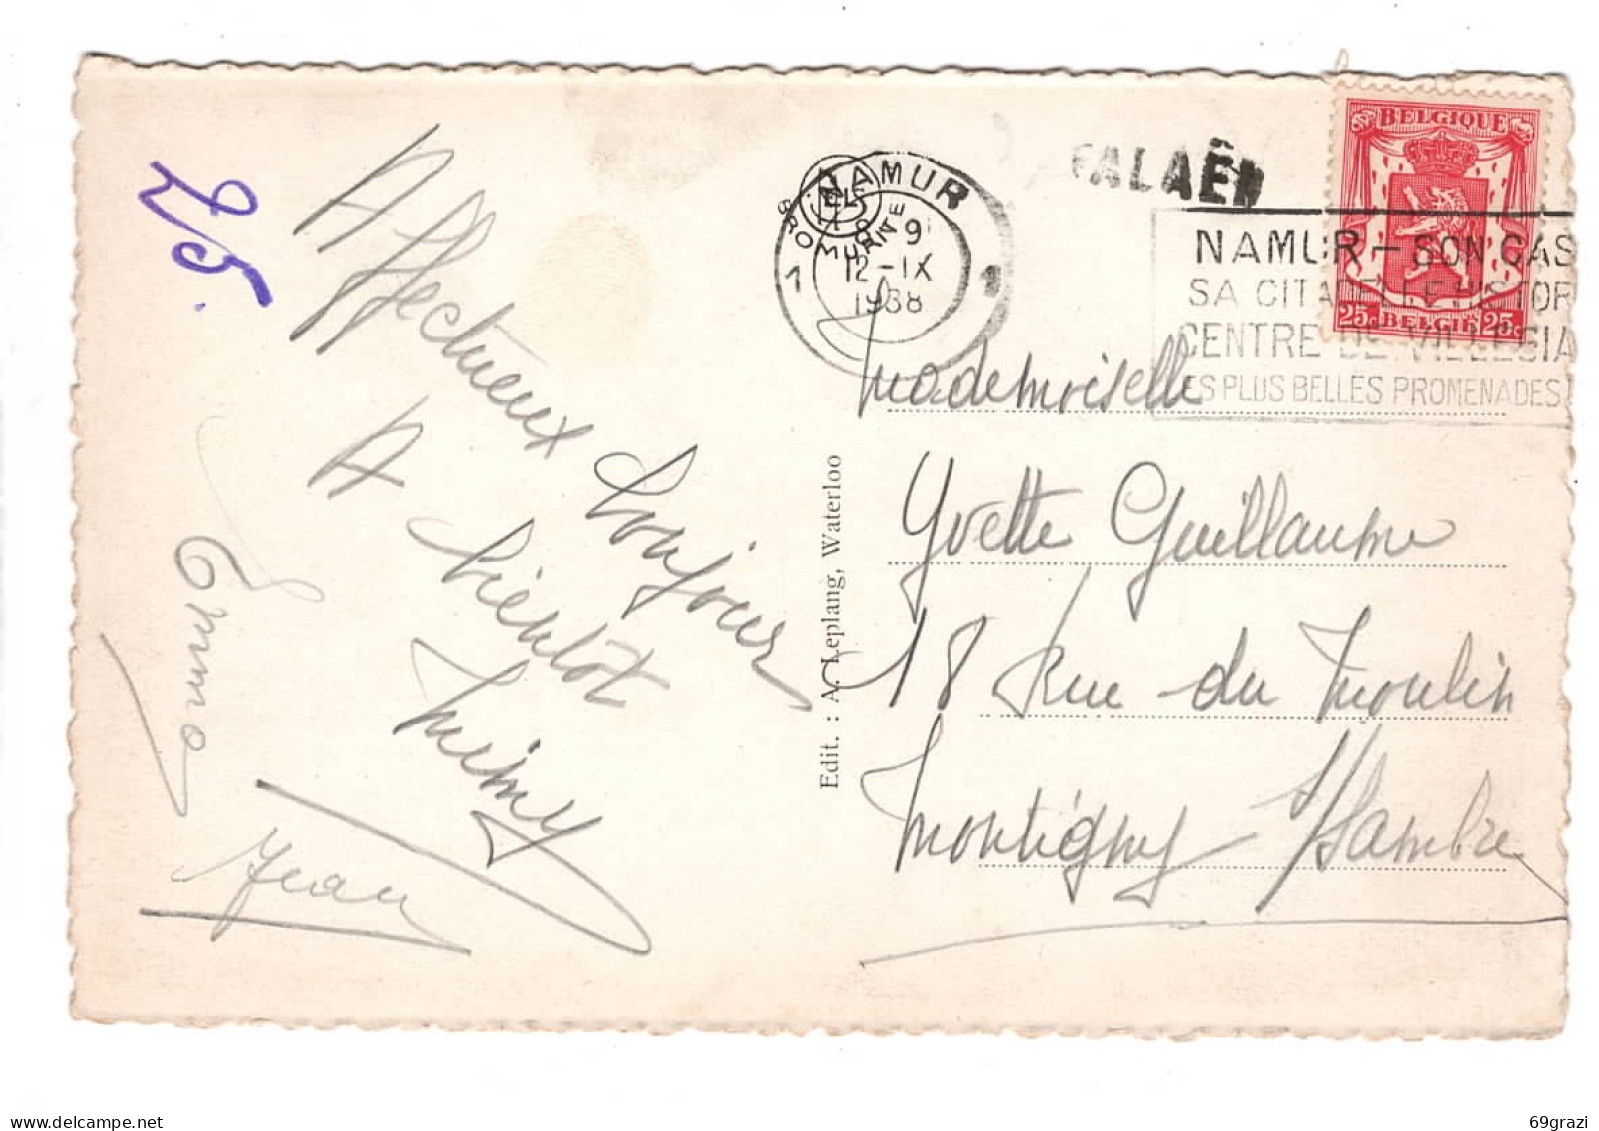 25.
Affectueux bonjour
A bientôt
Mimy
Emma
Jean
Edit. : A. Leplang, Waterloo
NAMUR
8-9
12-IX
1938
1 1
FALAËN
NAMUR - SON CAS
SA CITADELLE HISTOR
CENTRE DE VILLÉGIA
ES PLUS BELLES PROMENADES
BELGIQUE
25c BELGIË 25c
Mademoiselle
Yvette Guillaume
18 Rue du Moulin
Montigny s/Sambre
delcampe.net
69grazi